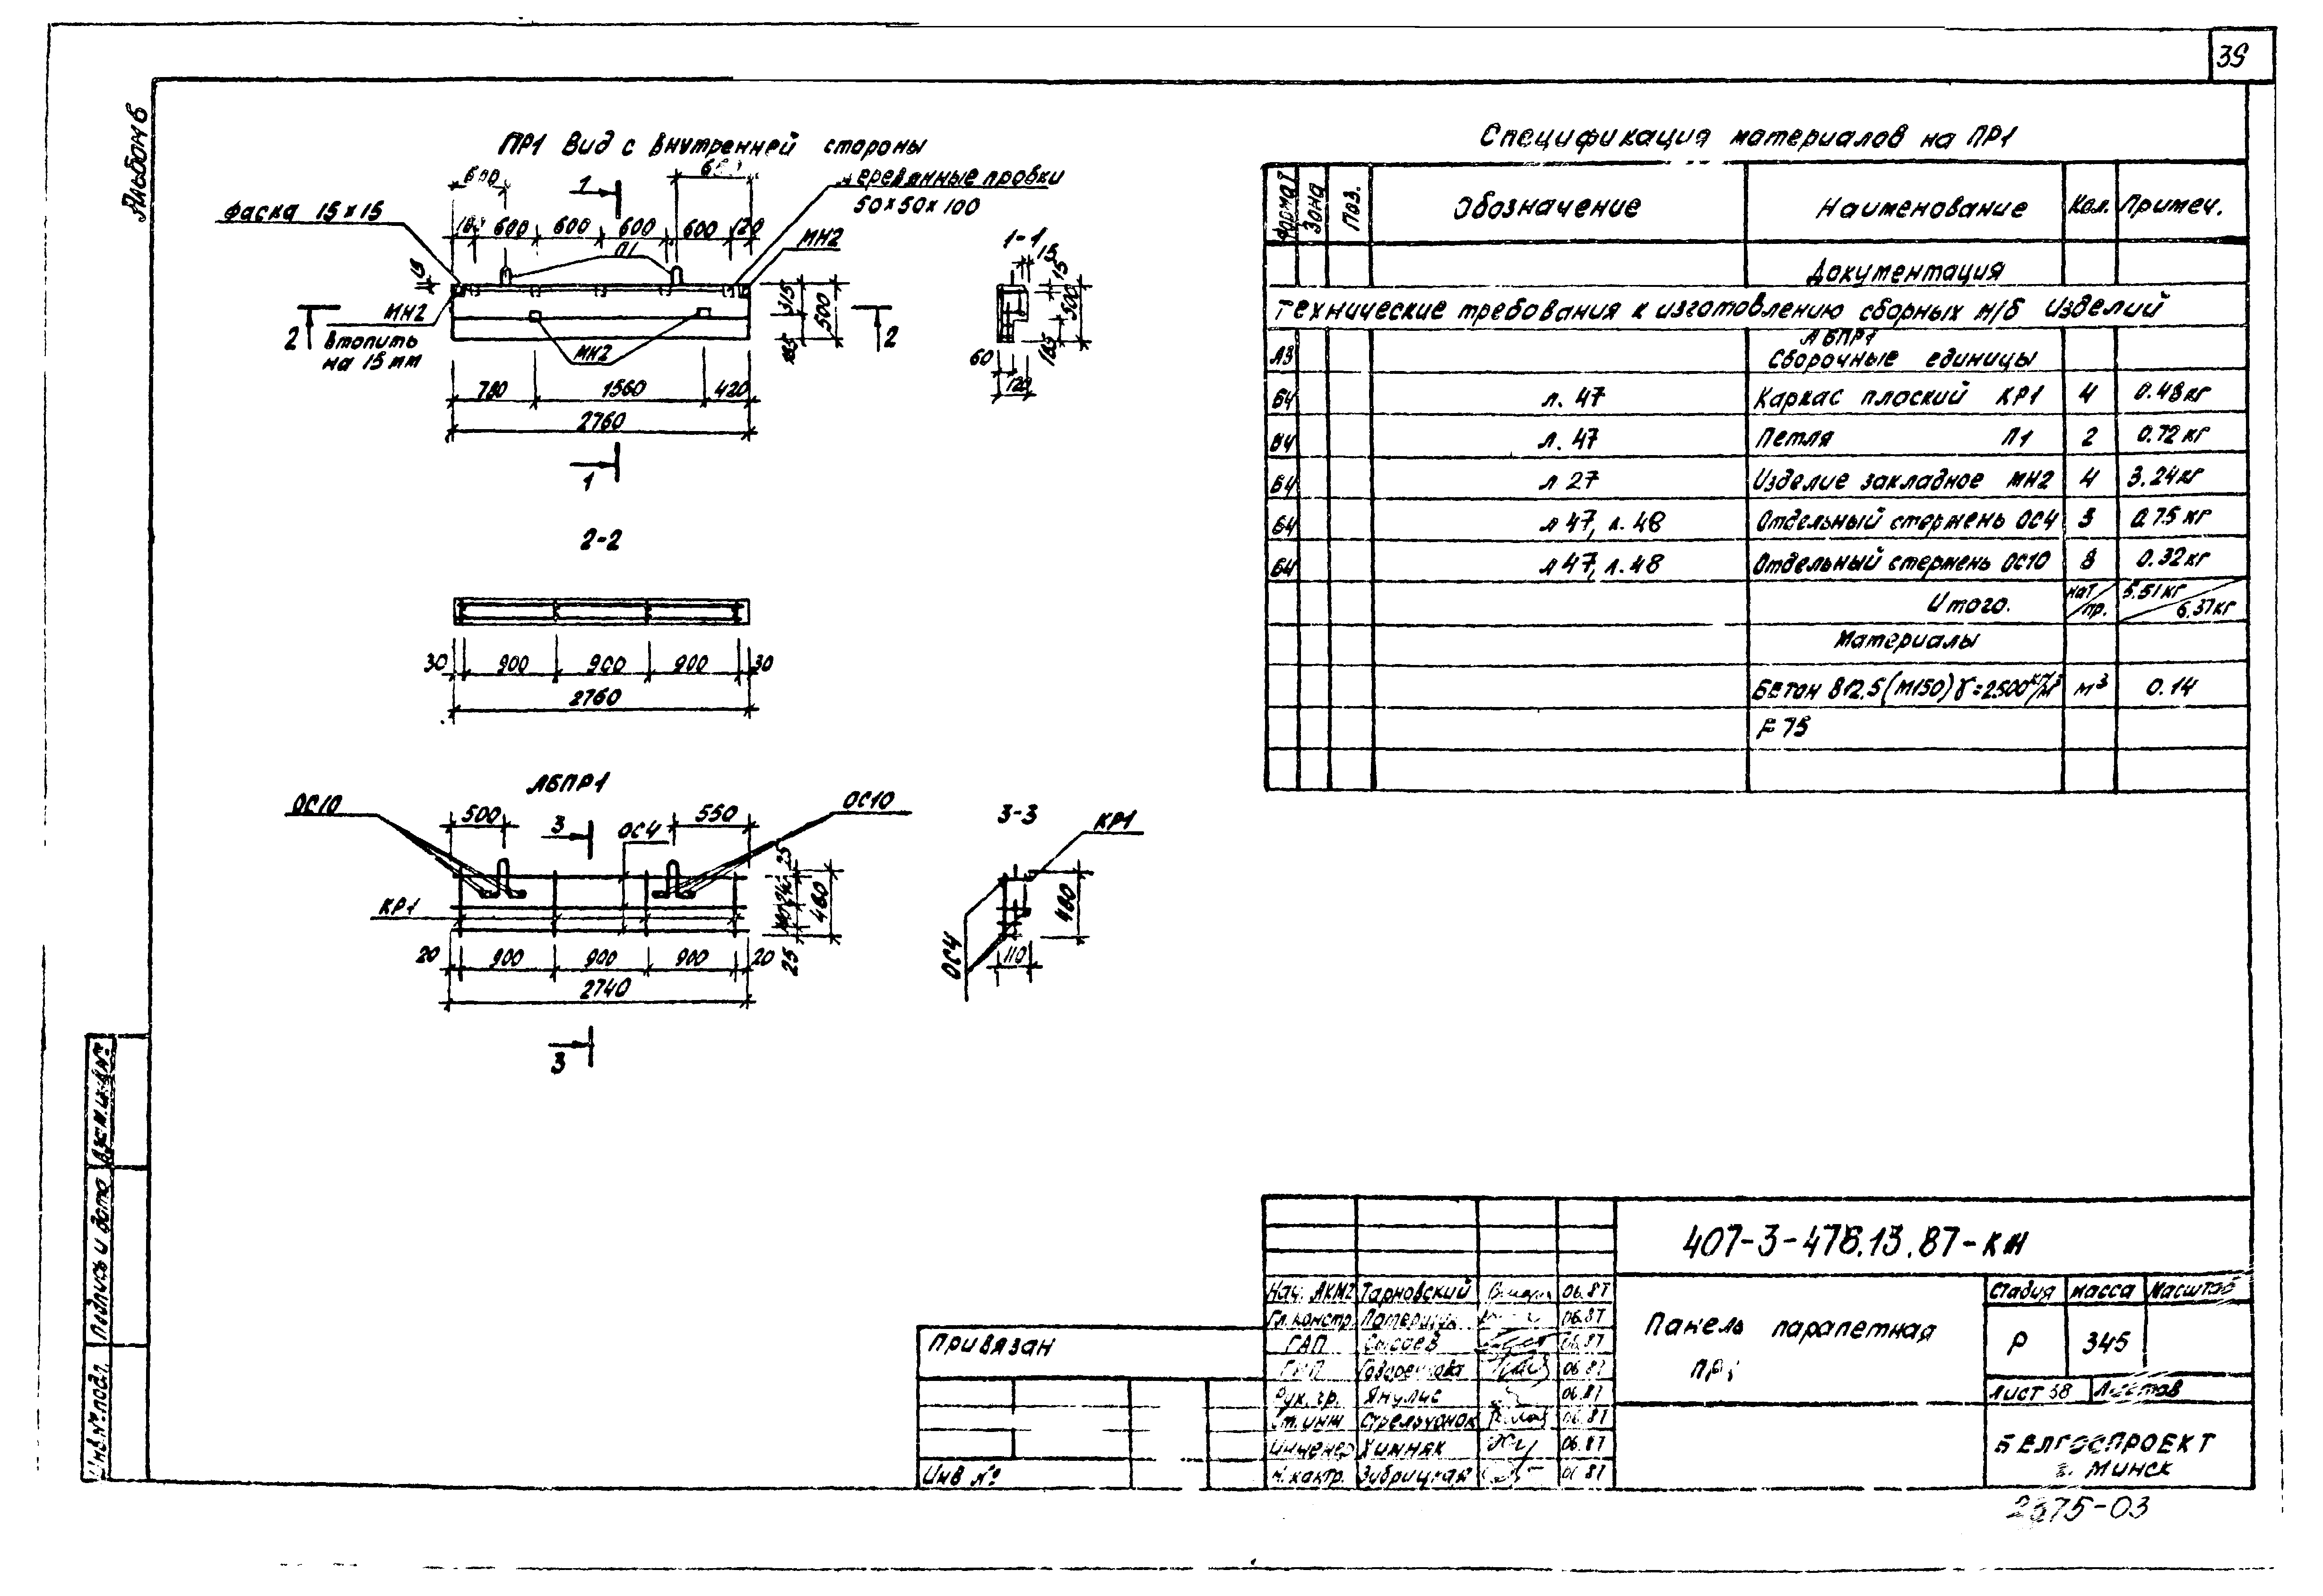 39
Альбом 6
ПР1 Вид с внутренней стороны
600
1
деревянные пробки
50×50×100
фаска 15×15
600 600 600 600 120
П1
МН2
15
МН2
втопить
на 15 мм
2
2
315
500
185
МН2
780 1560 420
2760
1
1-1
15
15
500
185
60
120
2-2
30 900 900 900 30
2760
АБПР1
ОС10
500
3
ОС4
550
ОС10
25
460
25
КР1
20 900 900 900 20
2740
3
3-3
КР1
480
ОС4
110
Спецификация материалов на ПР1
Формат Зона Поз. Обозначение Наименование Кол. Примеч.
Документация
Технические требования к изготовлению сборных ж/б изделий
АБПР1
А3 Сборочные единицы
Б4 л. 47 Каркас плоский КР1 4 0.48кг
Б4 л. 47 Петля П1 2 0.72 кг
Б4 л 27 Изделие закладное МН2 4 3.24кг
Б4 л 47, л. 48 Отдельный стержень ОС4 3 0.75 кг
Б4 л 47, л. 48 Отдельный стержень ОС10 8 0.32кг
Итого. нат/пр. 5.51кг/6.37кг
Материалы
Бетон В12.5 (М150) γ=2500кг/м³ м³ 0.14
F 75
407-3-478.13.87-КЖ
Нач. АКМ2 Тарновский 06.87
Гл. констр. 06.87
ГАП Сысоев 06.87
ГИП 06.87
Рук. гр. Янулис 06.87
Ст. инж Стрельчонок 06.87
Инженер Химняк 06.87
Н. контр. Зубрицкая 06 87
Панель парапетная
ПР1
Стадия Масса Масштаб
Р 345
Лист 38 Листов
БЕЛГОСПРОЕКТ
г. Минск
Привязан
Инв №
Взам. инв. №
Подпись и дата
Инв. № подл.